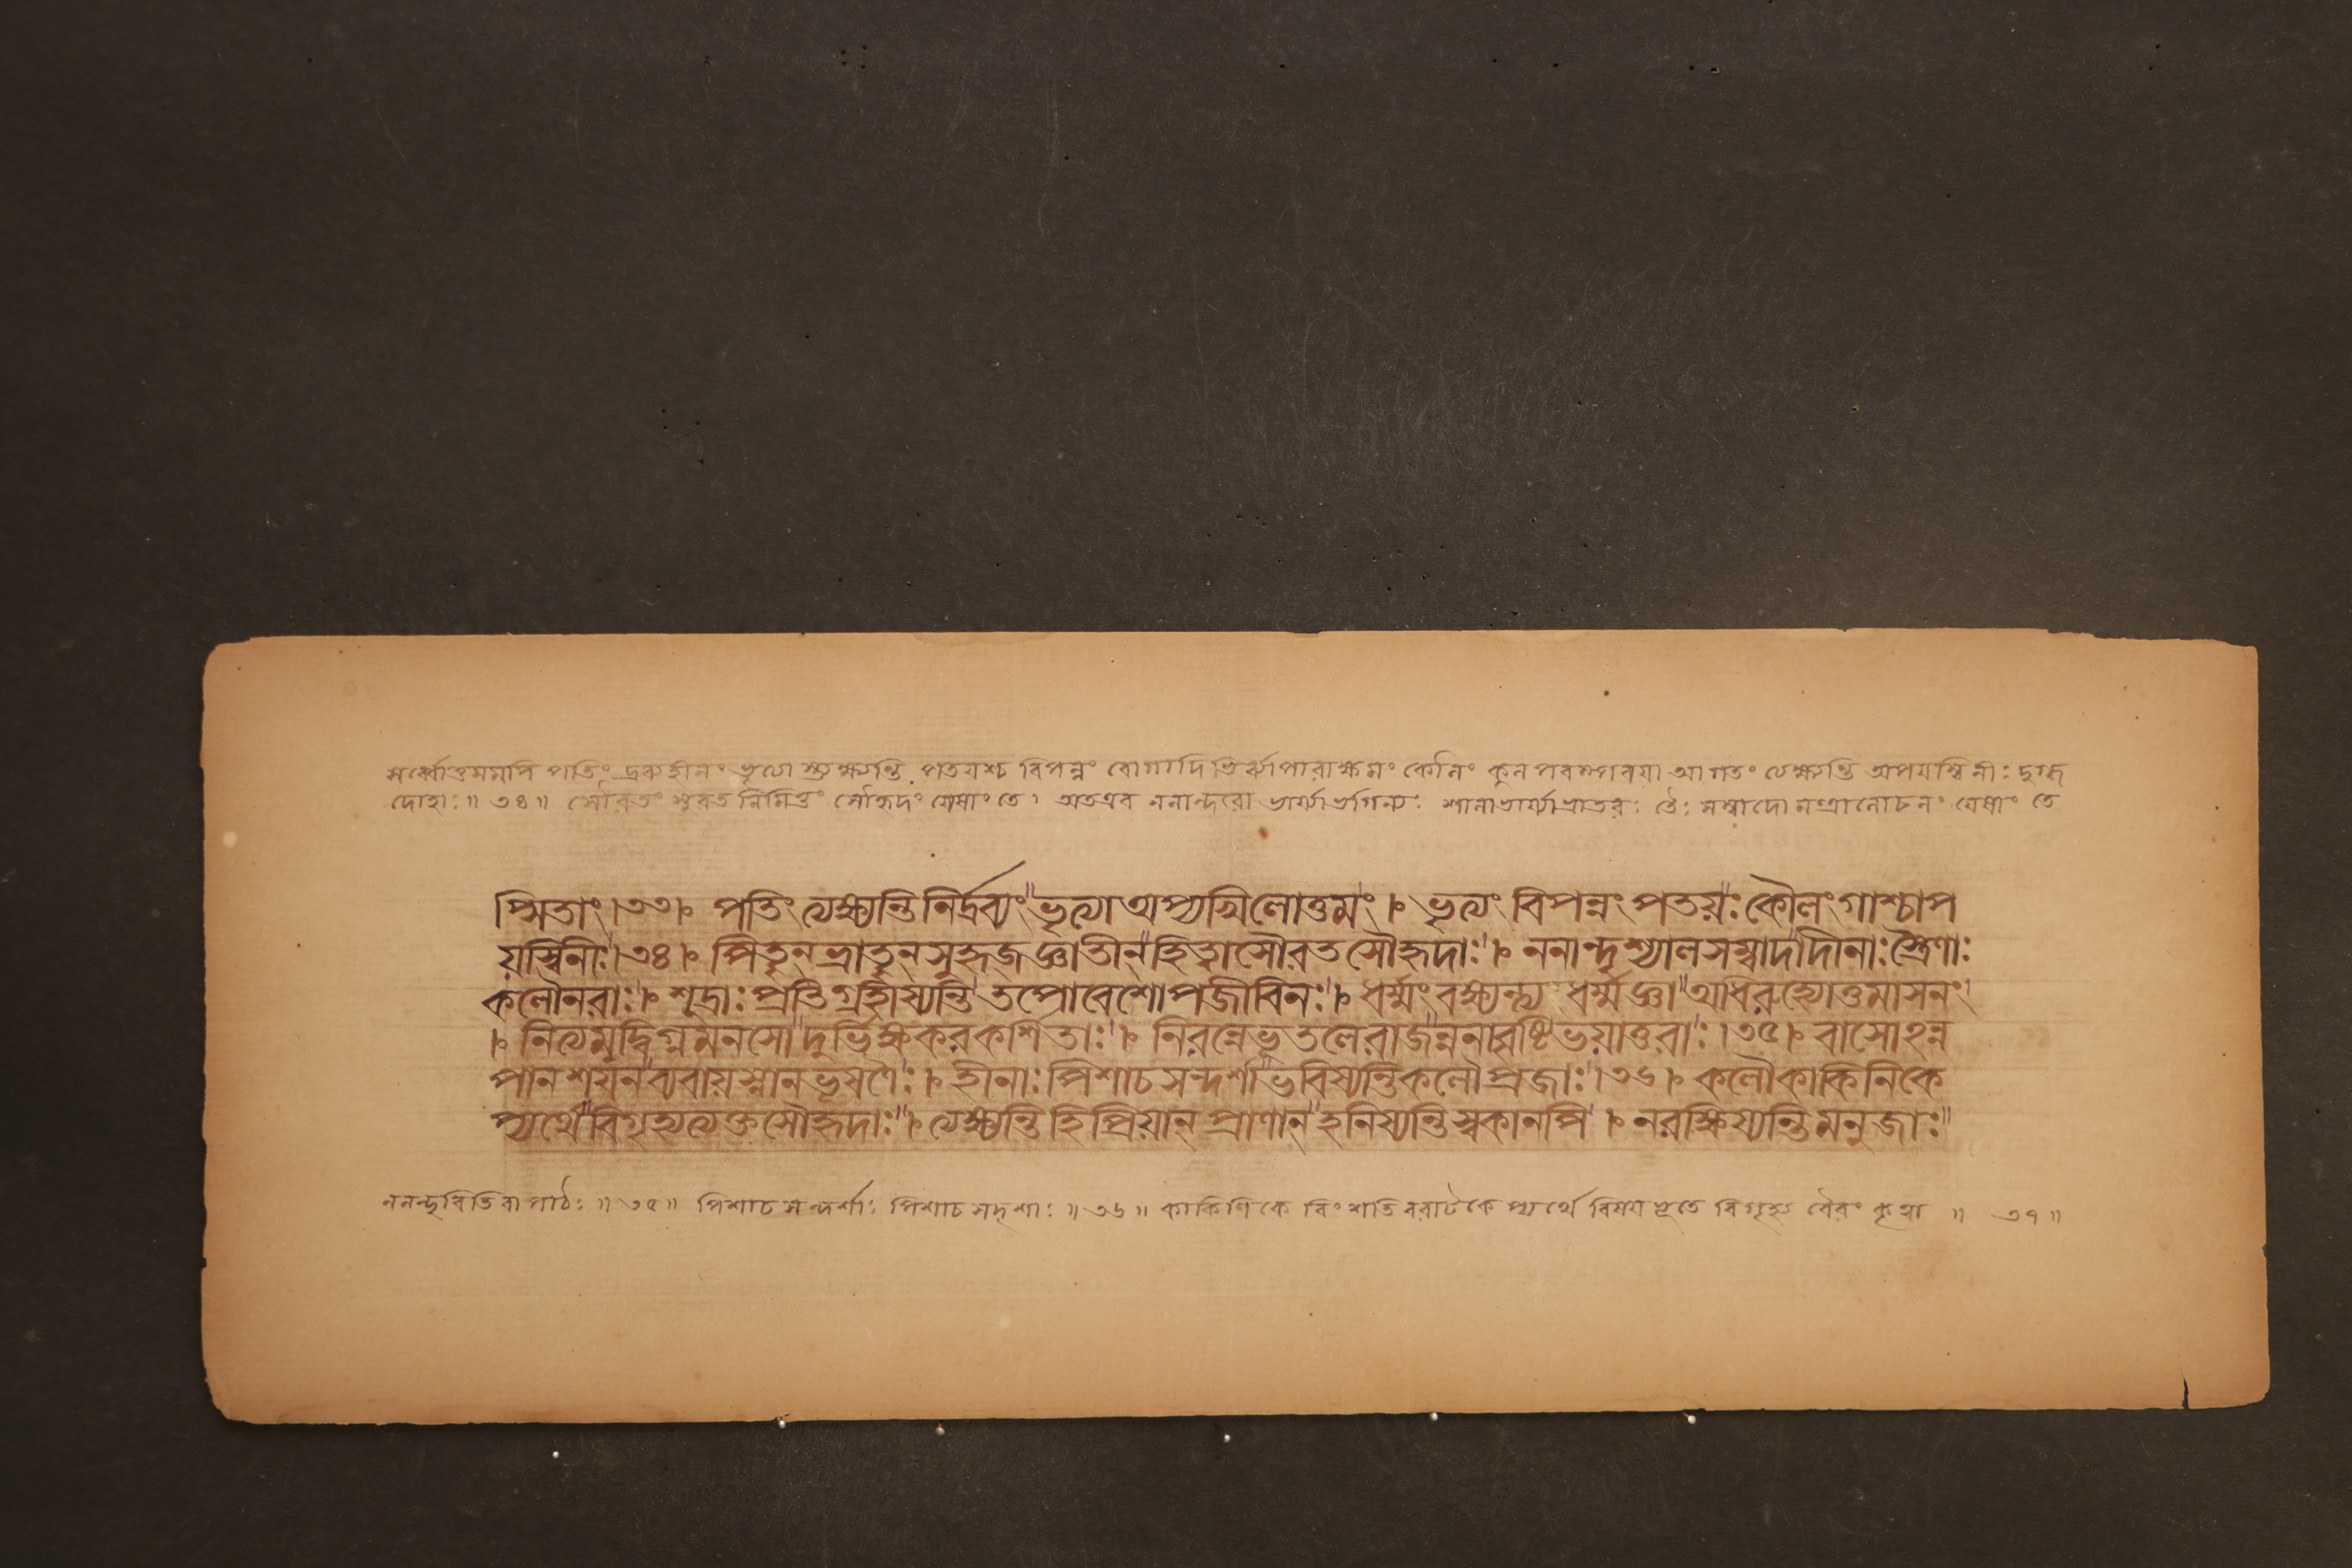 সর্ব্বোত্তমমপি পতিং দ্রব্যহীনং ভৃত্যাস্ত্যক্ষ্যন্তি পতয়শ্চ বিপন্নং রোগাদিভির্ব্যাপারাক্ষমং কৌলং কুলপরম্পরয়া আগতং ত্যক্ষ্যন্তি অপয়স্বিনীঃ দুগ্ধ
দোহাঃ॥ ৩৪॥ সৌরতং সুরতনিমিত্তং সৌহৃদং যেষাং তে। অতএব ননান্দরো ভার্য্যাভগিন্যঃ শ্যালাভার্য্যাভ্রাতরঃ তৈঃ সম্বাদো মন্ত্রালোচনং যেষাং তে
প্সিতাং।৩৩।ঃ পতিং ত্যক্ষ্যন্তি নির্দ্রব্যং ভৃত্যা অপ্যখিলোত্তমং।ঃ ভৃত্যং বিপন্নং পতয়ঃ কৌলং গাশ্চাপ
য়স্বিনীঃ।৩৪।ঃ পিতৄন ভ্রাতৄন সুহৃজ্জ্ঞাতীন হিত্বা সৌরতসৌহৃদাঃ।ঃ ননান্দৃশ্যালসম্বাদাদীনাঃ স্ত্রৈণাঃ
কলৌ নরাঃ।ঃ শূদ্রাঃ প্রতিগ্রহীষ্যন্তি তপোবেশোপজীবিনঃ।ঃ ধর্ম্মং বক্ষ্যন্ত্য ধর্ম্মজ্ঞা অধিরুহ্যোত্তমাসনং
।ঃ নিত্যমুদ্বিগ্নমনসো দুর্ভিক্ষকরকর্শিতাঃ।ঃ নিরন্নে ভূতলে রাজন্ননাবৃষ্টিভয়াতুরাঃ।৩৫।ঃ বাসোহন্ন
পানশয়নব্যবায়স্নানভূষণৈঃ।ঃ হীনাঃ পিশাচসন্দর্শা ভবিষ্যন্তি কলৌ প্রজাঃ।৩৬।ঃ কলৌ কাকিনিকে
প্যর্থে বিগৃহ্য ত্যক্তসৌহৃদাঃ।ঃ ত্যক্ষ্যন্তি হি প্রিয়ান প্রাণান হনিষ্যন্তি স্বকানপি।ঃ ন রক্ষিষ্যন্তি মনুজাঃ
ননন্দৃবিতি বা পাঠঃ॥৩৫॥ পিশাচসন্দর্শাঃ পিশাচসদৃশাঃ॥৩৬॥ কাকিণিকে বিংশতিবরাটকেপ্যর্থে বিষয়ভূতে বিগৃহ্য বৈরং কৃত্বা॥ ৩৭॥